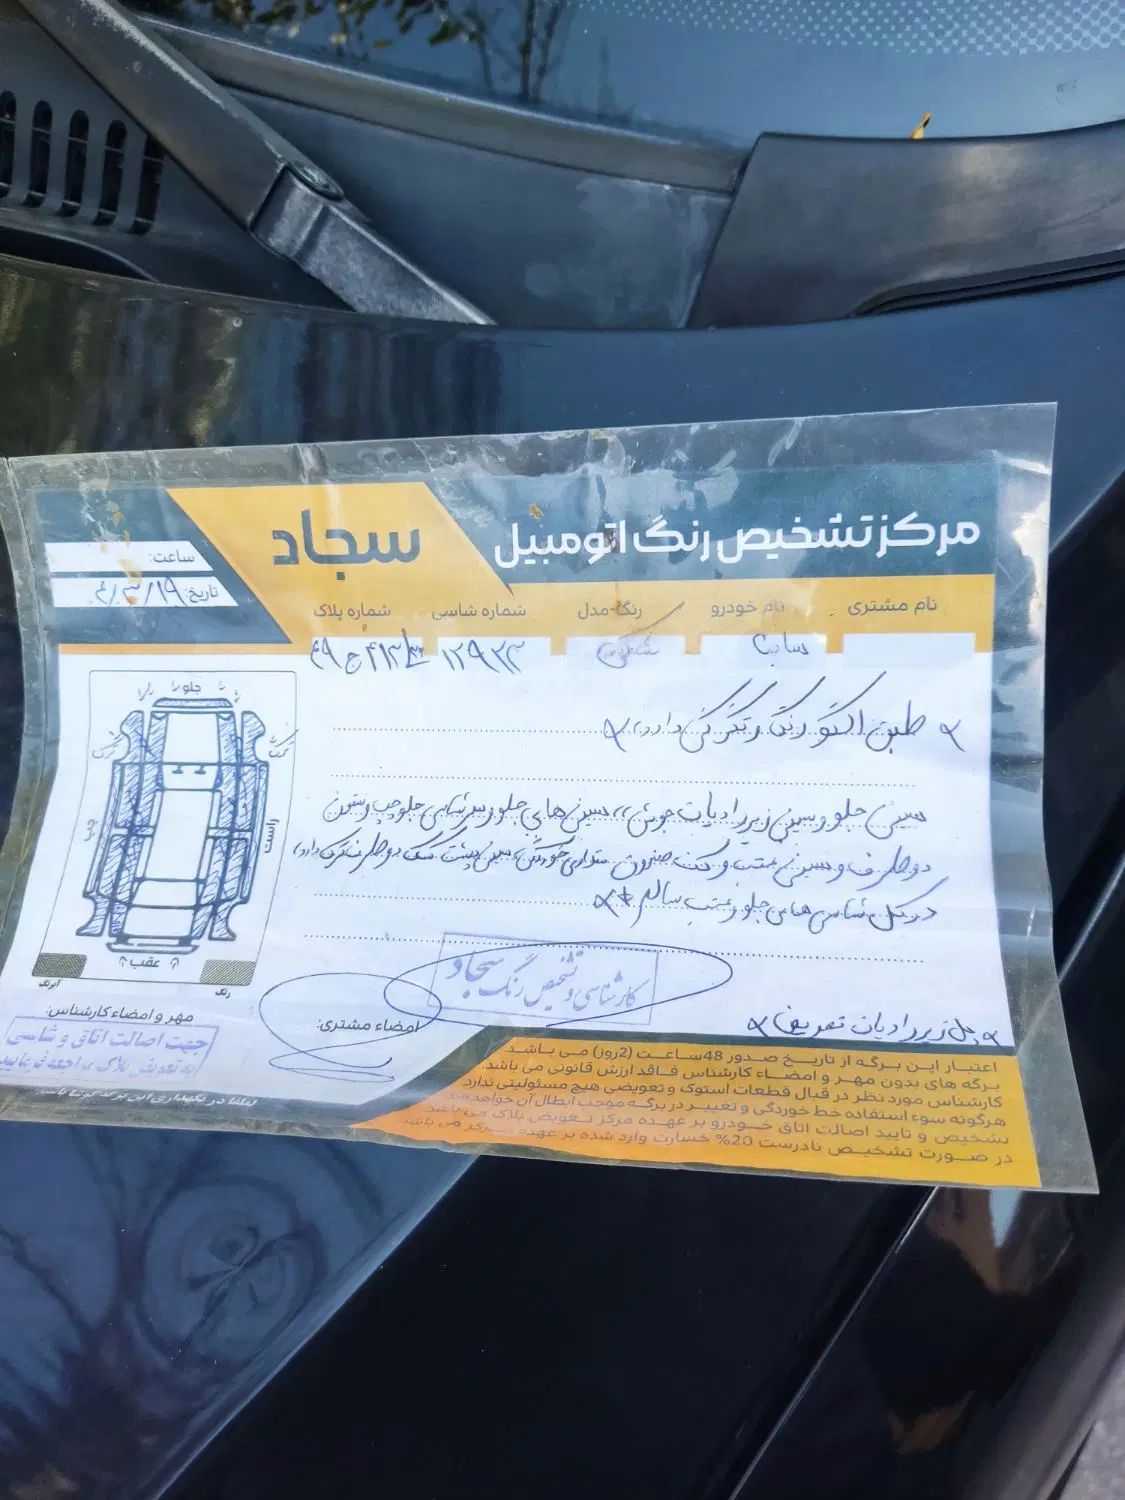 مرکز تشخیص رنگ اتومبیل
سجاد
ساعت:
تاریخ: ۴۰۳/۳/۱۹
نام مشتری نام خودرو رنگ-مدل شماره شاسی شماره پلاک
سایپا مشکی ۱۲۹۲۳
طبق الگو رنگ و تگرگی دارد
سینی جلو و سینی زیر رادیات جوش، سینی های جلو و سرشاسی جلو چپ و ستون
دو طرف و سینی عقب و کف صندوق خوردگی، سینی پشت گلگیر دو طرف رنگ دارد،
در کل شاسی های جلو و عقب سالم
پل زیر رادیات تعویض
جلو
چپ
راست
عقب
آبرنگ
رنگ
مهر و امضاء کارشناس:
جهت اصالت اتاق و شاسی
به تعویض پلاک مراجعه فرمایید
کارشناسی و تشخیص رنگ سجاد
امضاء مشتری:
اعتبار این برگه از تاریخ صدور 48ساعت (2روز) می باشد.
برگه های بدون مهر و امضاء کارشناس فاقد ارزش قانونی می باشد.
کارشناس مورد نظر در قبال قطعات استوک و تعویضی هیچ مسئولیتی ندارد.
هرگونه سوء استفاده خط خوردگی و تغییر در برگه موجب ابطال آن خواهد شد
تشخیص و تایید اصالت اتاق خودرو بر عهده مرکز تعویض پلاک می باشد
در صورت تشخیص نادرست 20% خسارت وارد شده بر عهده مرکز می باشد
لطفا در نگهداری این برگه کوشا باشید